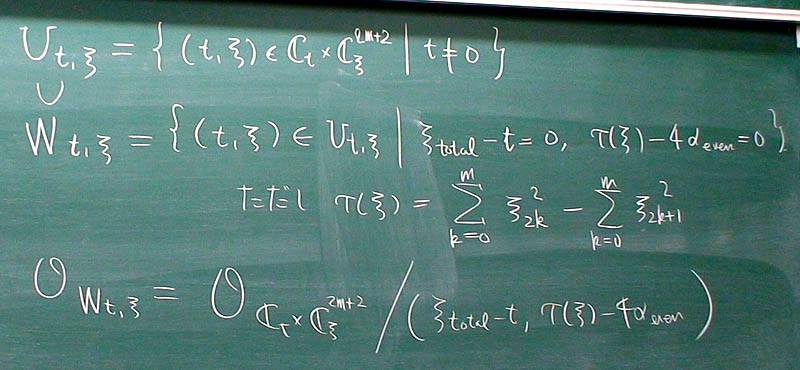 U_{t,ξ} = { (t,ξ) ∈ ℂ_t × ℂ_ξ^{2m+2} | t ≠ 0 }
∪
W_{t,ξ} = { (t,ξ) ∈ U_{t,ξ} | ξ_{total} - t = 0, τ(ξ) - 4α_{even} = 0 }
ただし τ(ξ) = Σ_{k=0}^{m} ξ_{2k}^2 - Σ_{k=0}^{m} ξ_{2k+1}^2
O_{W_{t,ξ}} = O_{ℂ_t × ℂ_ξ^{2m+2}} / (ξ_{total} - t, τ(ξ) - 4α_{even})